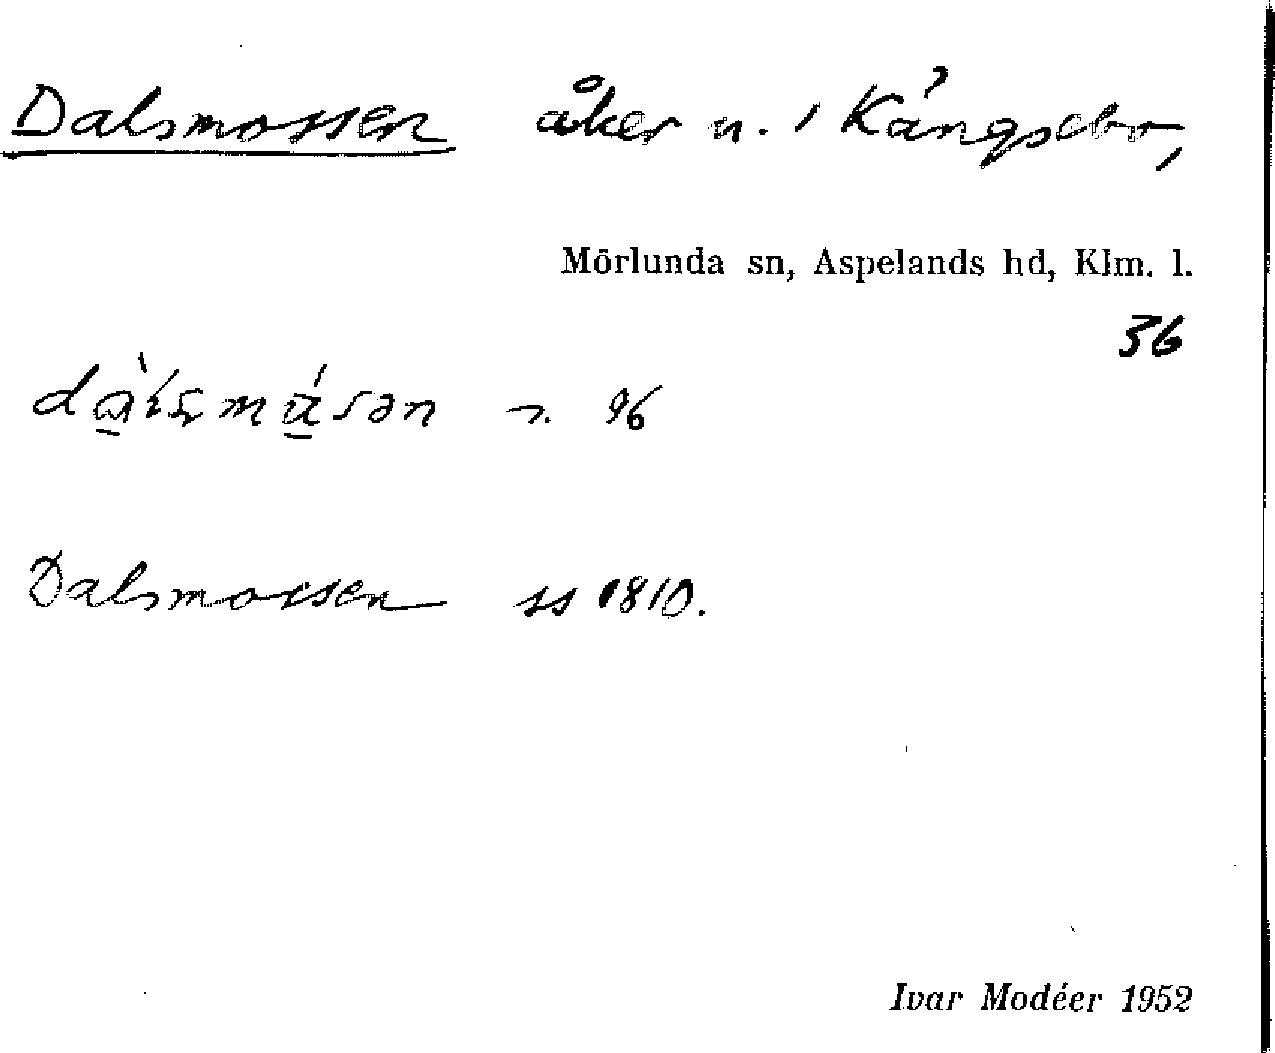 Dalsmossen åker n. i Kångsebo,
Mörlunda sn, Aspelands hd, Klm. l.
36
n. 96
Dalsmossen ss 1810.
Ivar Modéer 1952